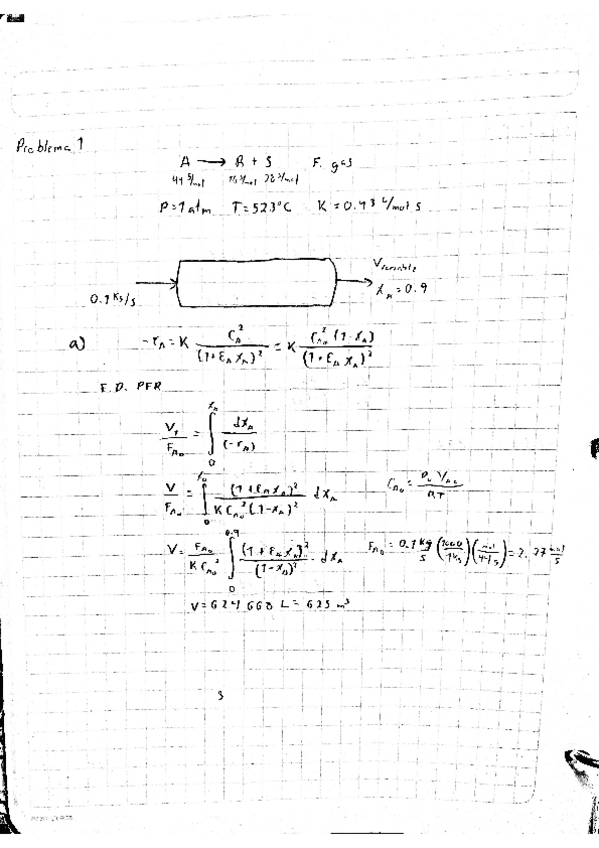 Problema 1
A → R + S F. gas
44 g/mol 16 g/mol 28 g/mol
P = 1 atm T = 523°C K = 0.43 L/mol s
V variable
0.1 Kg/s X_A = 0.9
a) -r_A = K C_A^2 / (1+ε_A X_A)^2 = K C_A0^2 (1-X_A) / (1+ε_A X_A)^2
E.D. PFR
V_r / F_A0 = ∫_0^{X_A} dX_A / (-r_A)
V / F_A0 = ∫_0^{X_A} (1+ε_A X_A)^2 / K C_A0^2 (1-X_A)^2 dX_A C_A0 = P_0 Y_A0 / RT
V = F_A0 / K C_A0^2 ∫_0^{0.9} (1+ε_A X_A)^2 / (1-X_A)^2 dX_A F_A0 = 0.1 Kg/s (1000/1 Kg) (mol/44 g) = 2.27 mol/s
V = 624 668 L = 625 m^3